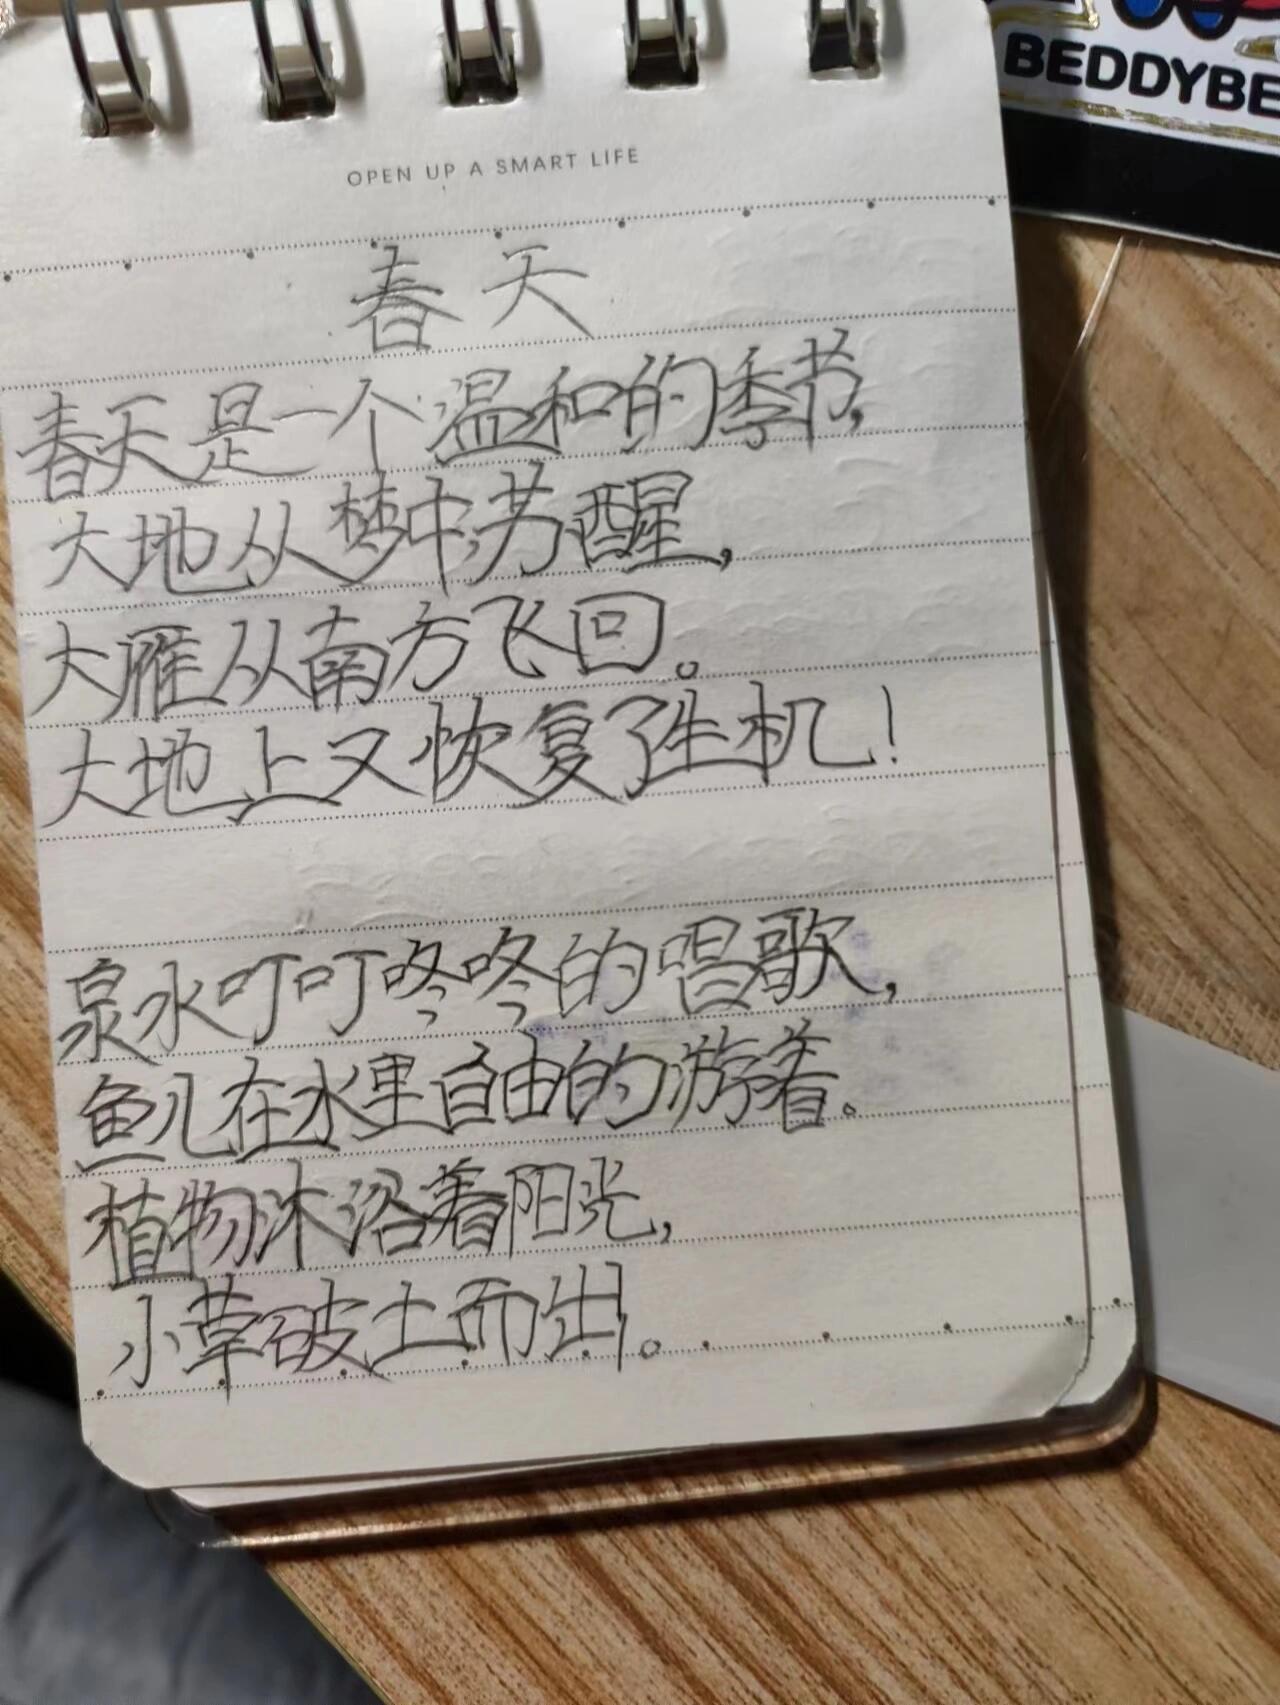 BEDDYBE
OPEN UP A SMART LIFE
春天
春天是一个温和的季节,
大地从梦中苏醒,
大雁从南方飞回。
大地上又恢复了生机!
泉水叮叮咚咚的唱歌,
鱼儿在水里自由的游着。
植物沐浴着阳光,
小草破土而出。